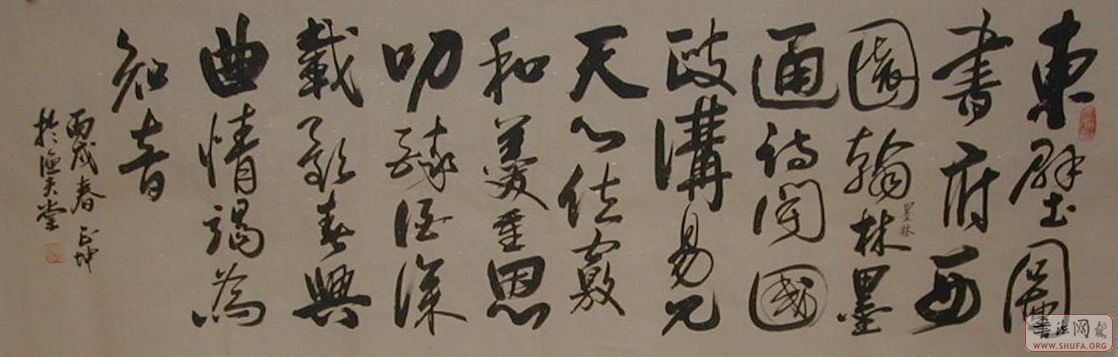 東壁圖
書府西
墨林
園翰林墨
通詩聞國
政講易見
天心位竊
和羹重恩
叨醉酒深
載歌春興
曲情竭為
知音
丙戌春 正坤
於 堂
書法网
WWW.SHUFA.ORG